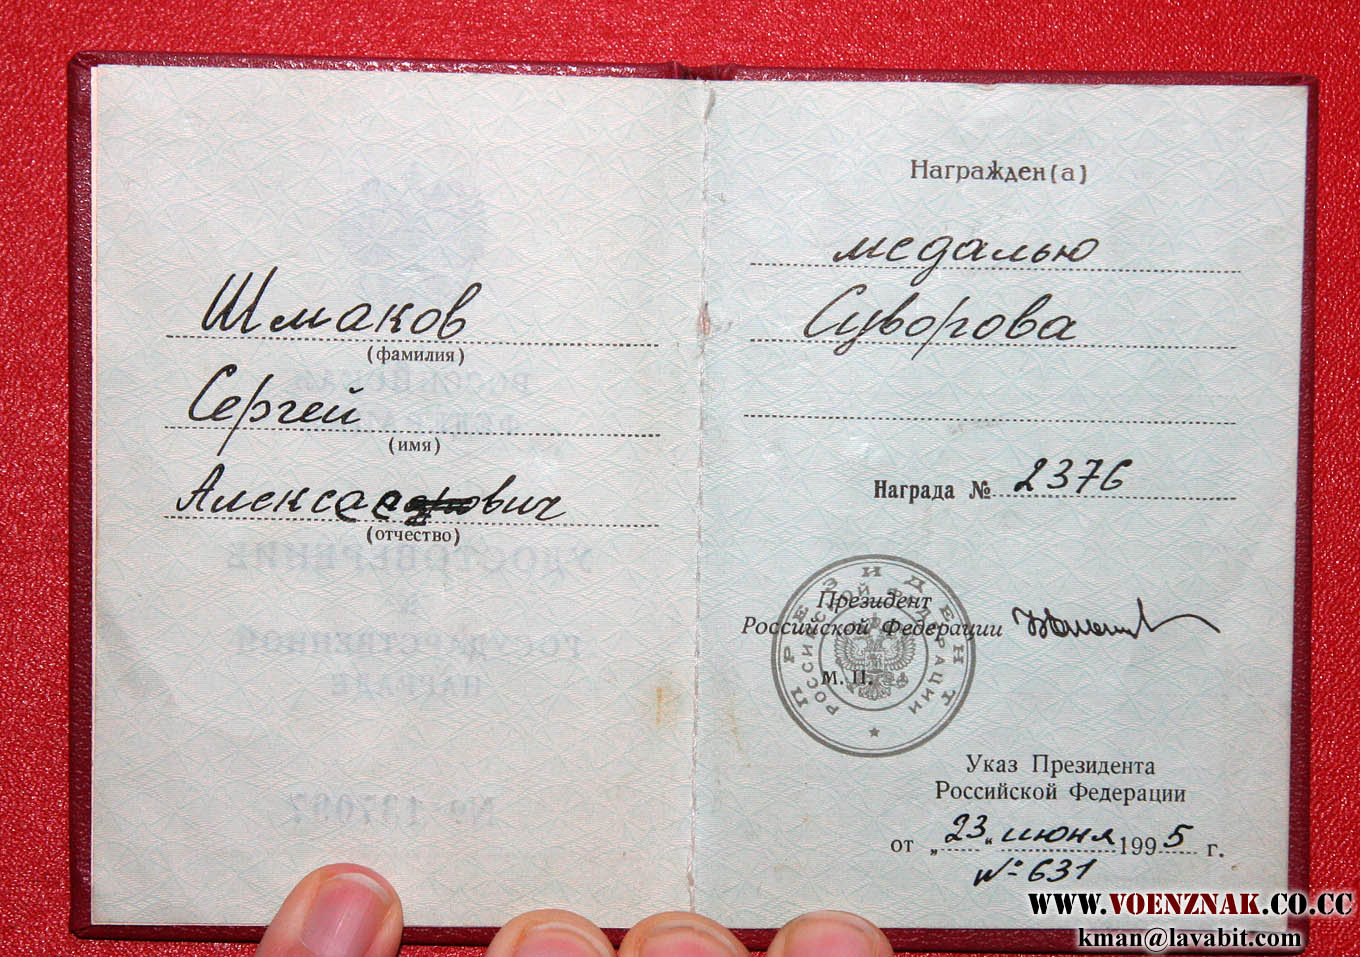 Шмаков
(фамилия)
Сергей
(имя)
(отчество)
Награжден(а)
медалью
Суворова
Награда № 2376
ПРЕЗИДЕНТ
РОССИЙСКОЙ ФЕДЕРАЦИИ
Президент
Российской Федерации
М. П.
Указ Президента
Российской Федерации
от „23“ июня 1995 г.
№ 631
УДОСТОВЕРЕНИЕ
к
ГОСУДАРСТВЕННОЙ
НАГРАДЕ
WWW.VOENZNAK.CO.CC
kman@lavabit.com